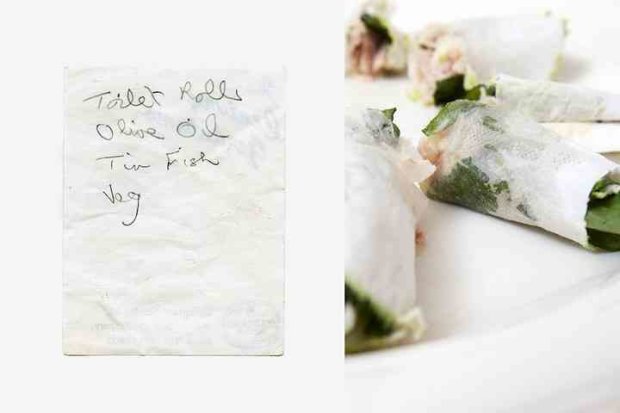 Toilet Rolls
Olive Oil
Tin Fish
Veg